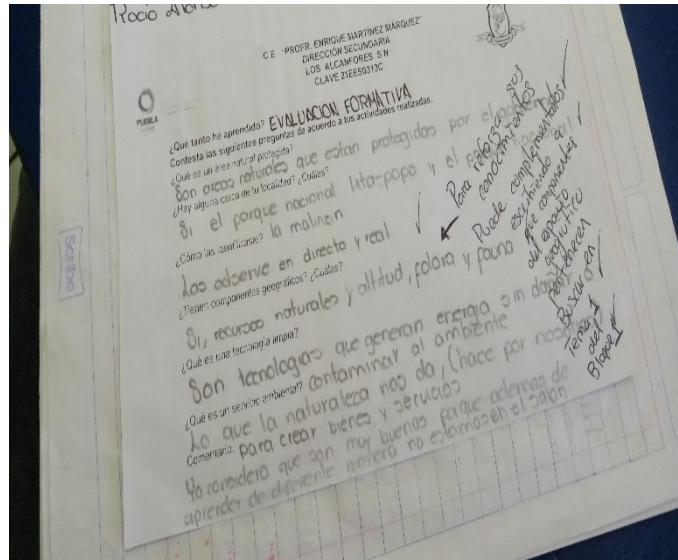 Rocio
C.E. "PROFR. ENRIQUE MARTÍNEZ MÁRQUEZ"
DIRECCIÓN SECUNDARIA
LOS ALCANFORES S.N.
CLAVE 21EES0313C
PUEBLA
¿Qué tanto he aprendido? EVALUACION FORMATIVA
Contesta las siguientes preguntas de acuerdo a tus actividades realizadas.
¿Qué es un área natural protegida?
Son areas naturales que estan protegidas por el
¿Hay alguna cerca de tu localidad? ¿Cuáles?
Si el parque nacional Ixta-popo y el
la malinzin
¿Cómo las identificaste?
Las adserve en directo y real
¿Tienen componentes geográficos? ¿Cuáles?
Si, recursos naturales y altitud, folora y fauna
¿Qué es una tecnología limpia?
Son tecnologias que generan energia sin dañar
contaminar al ambiente
¿Qué es un servicio ambiental?
Lo que la naturaleza nos da, (hace por
para crear bienes y servicios
Comentario:
Yo considero que son muy buenas porque ademas de
aprender de diferente manera no estamos en el salon
Para reforzar sus
conocimientos
Puede complementarlos
escribiendo a
que componentes
del espacio
geografico
pertenecen
Buscar en
Tema 1
del
Bloque 1
Scribe